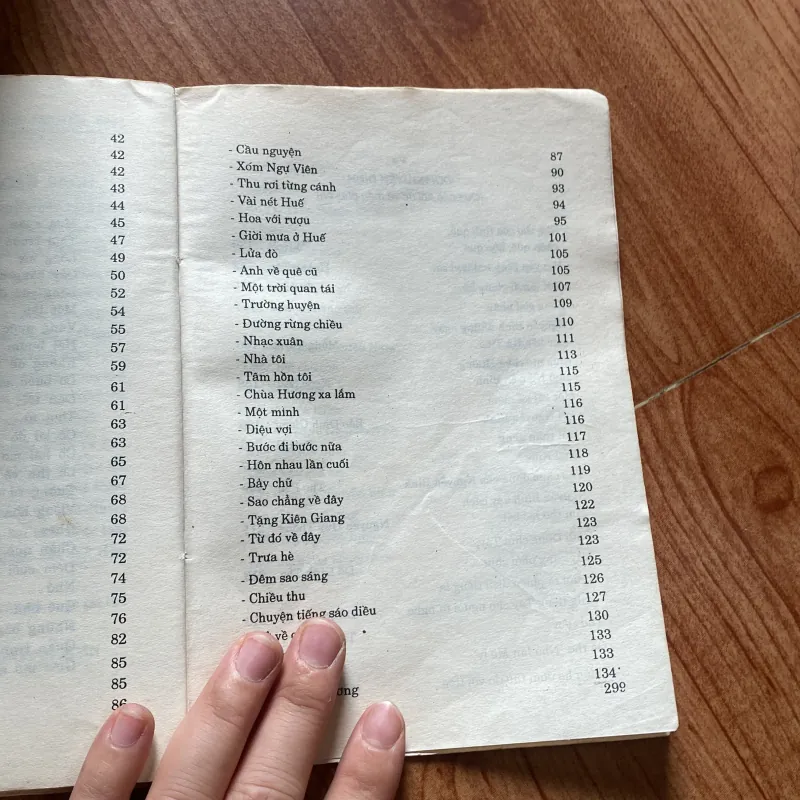 42
42
42
43
44
45
47
49
50
52
54
55
57
59
61
61
63
63
65
67
68
68
72
72
74
75
76
82
85
85
86
- Cầu nguyện 87
- Xóm Ngự Viên 90
- Thu rơi từng cánh 93
- Vài nét Huế 94
- Hoa với rượu 95
- Giời mưa ở Huế 101
- Lửa đò 105
- Anh về quê cũ 105
- Một trời quan tái 107
- Trường huyện 109
- Đường rừng chiều 110
- Nhạc xuân 111
- Nhà tôi 113
- Tâm hồn tôi 115
- Chùa Hương xa lắm 115
- Một mình 116
- Diệu vợi 116
- Bước đi bước nữa 117
- Hôn nhau lần cuối 118
- Bảy chữ 119
- Sao chẳng về đây 120
- Tặng Kiên Giang 122
- Từ đó về đây 123
- Trưa hè 123
- Đêm sao sáng 125
- Chiều thu 126
- Chuyện tiếng sáo diều 127
về 130
133
133
134
299